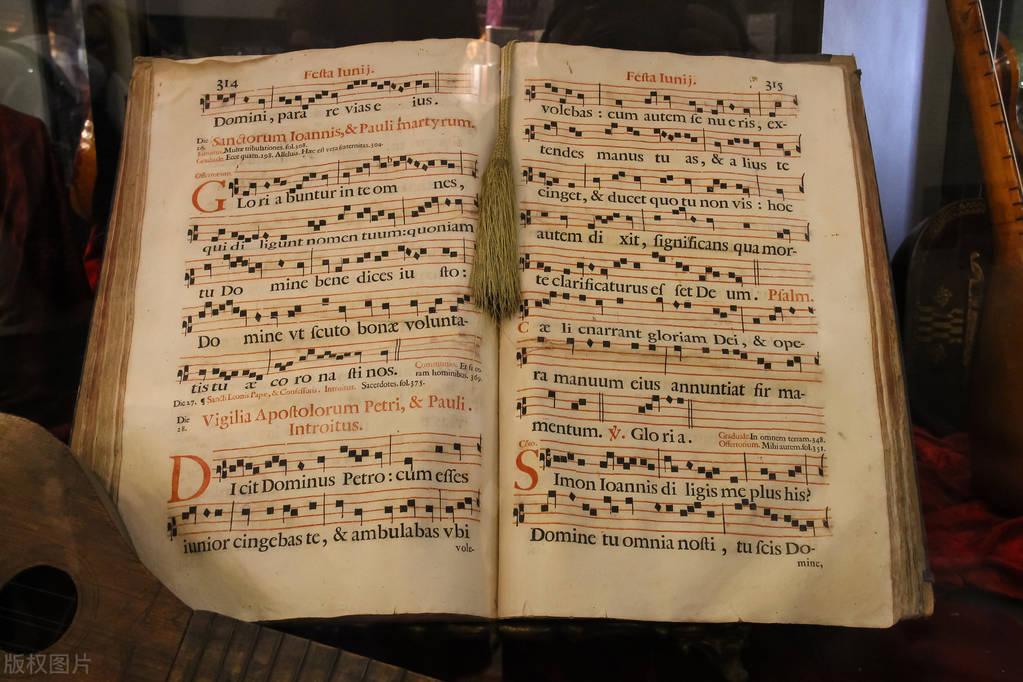 314
Festa Iunij.
Domini, para re vias e ius.
Die 26. Sanctorum Ioannis, & Pauli martyrum.
Introitus. Multæ tribulationes. fol. 308.
Graduale. Ecce quam. 298. Alleluia. Hæc est vera fraternitas. 304.
Offertorium.
GLo ri a buntur in te om nes,
qui di ligunt nomen tuum: quoniam
tu Do mine bene dices iu sto:
Do mine vt scuto bonæ volunta-
tis tu æ co ro na sti nos.
Communio. Et si co-
ram hominibus. 369.
Die 27. ¶ Sancti Leonis Papæ, & Confessoris. Introitus. Sacerdotes. fol. 375.
Die 28. Vigilia Apostolorum Petri, & Pauli.
Introitus.
DIcit Dominus Petro: cum esses
iunior cingebas te, & ambulabas vbi
vole-
Festa Iunij.
315
volebas: cum autem se nu eris, ex-
tendes manus tu as, & a lius te
cinget, & ducet quo tu non vis: hoc
autem di xit, significans qua mor-
te clarificaturus es set De um. Psalm.
Cæ li enarrant gloriam Dei, & ope-
ra manuum eius annuntiat fir ma-
mentum. ℣. Glo ri a.
Graduale. In omnem terram. 348.
Offertorium. Mihi autem. fol. 351.
Cōio.
SImon Ioannis di ligis me plus his?
Domine tu omnia nosti, tu scis Do-
mine,
版权图片